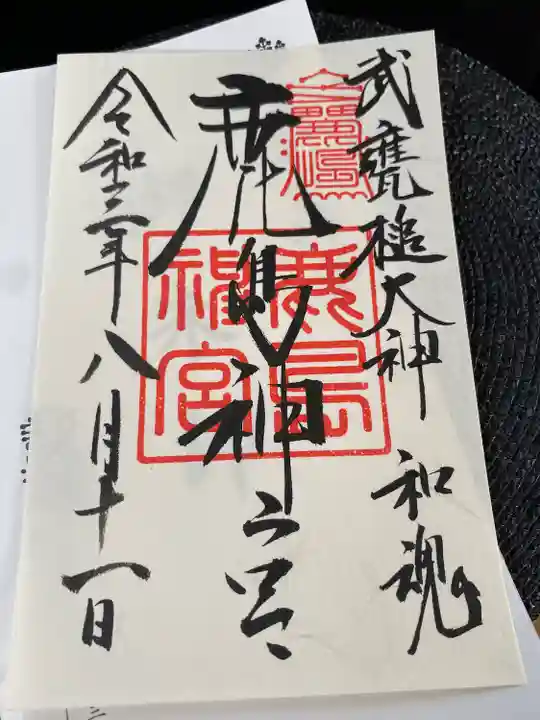 武甕槌大神 和魂
鹿島神宮
鹿島
神宮
令和三年八月十一日